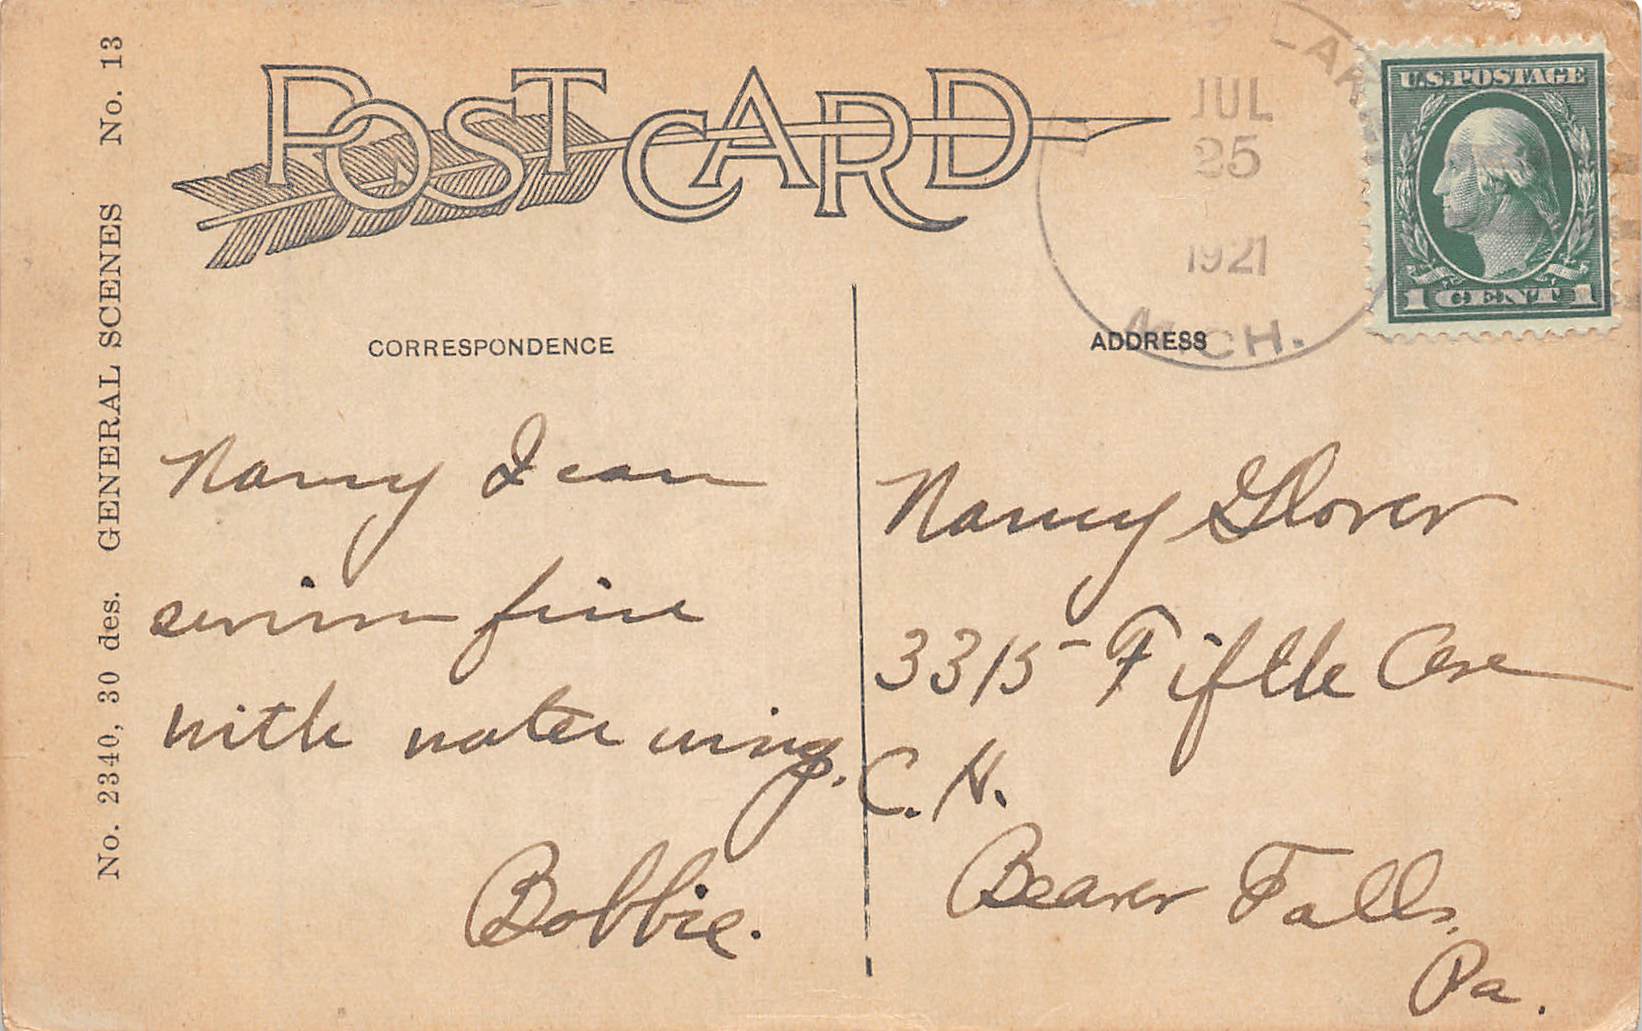 POST CARD
No. 2340, 30 des. GENERAL SCENES No. 13
CORRESPONDENCE
Nancy I can
swim fine
with water wing.
Bobbie.
ADDRESS
JUL
25
1921
MICH.
U.S. POSTAGE
1 CENT 1
Nancy Glover
3315 - Fifth Ave
C. H.
Beaver Falls,
Pa.